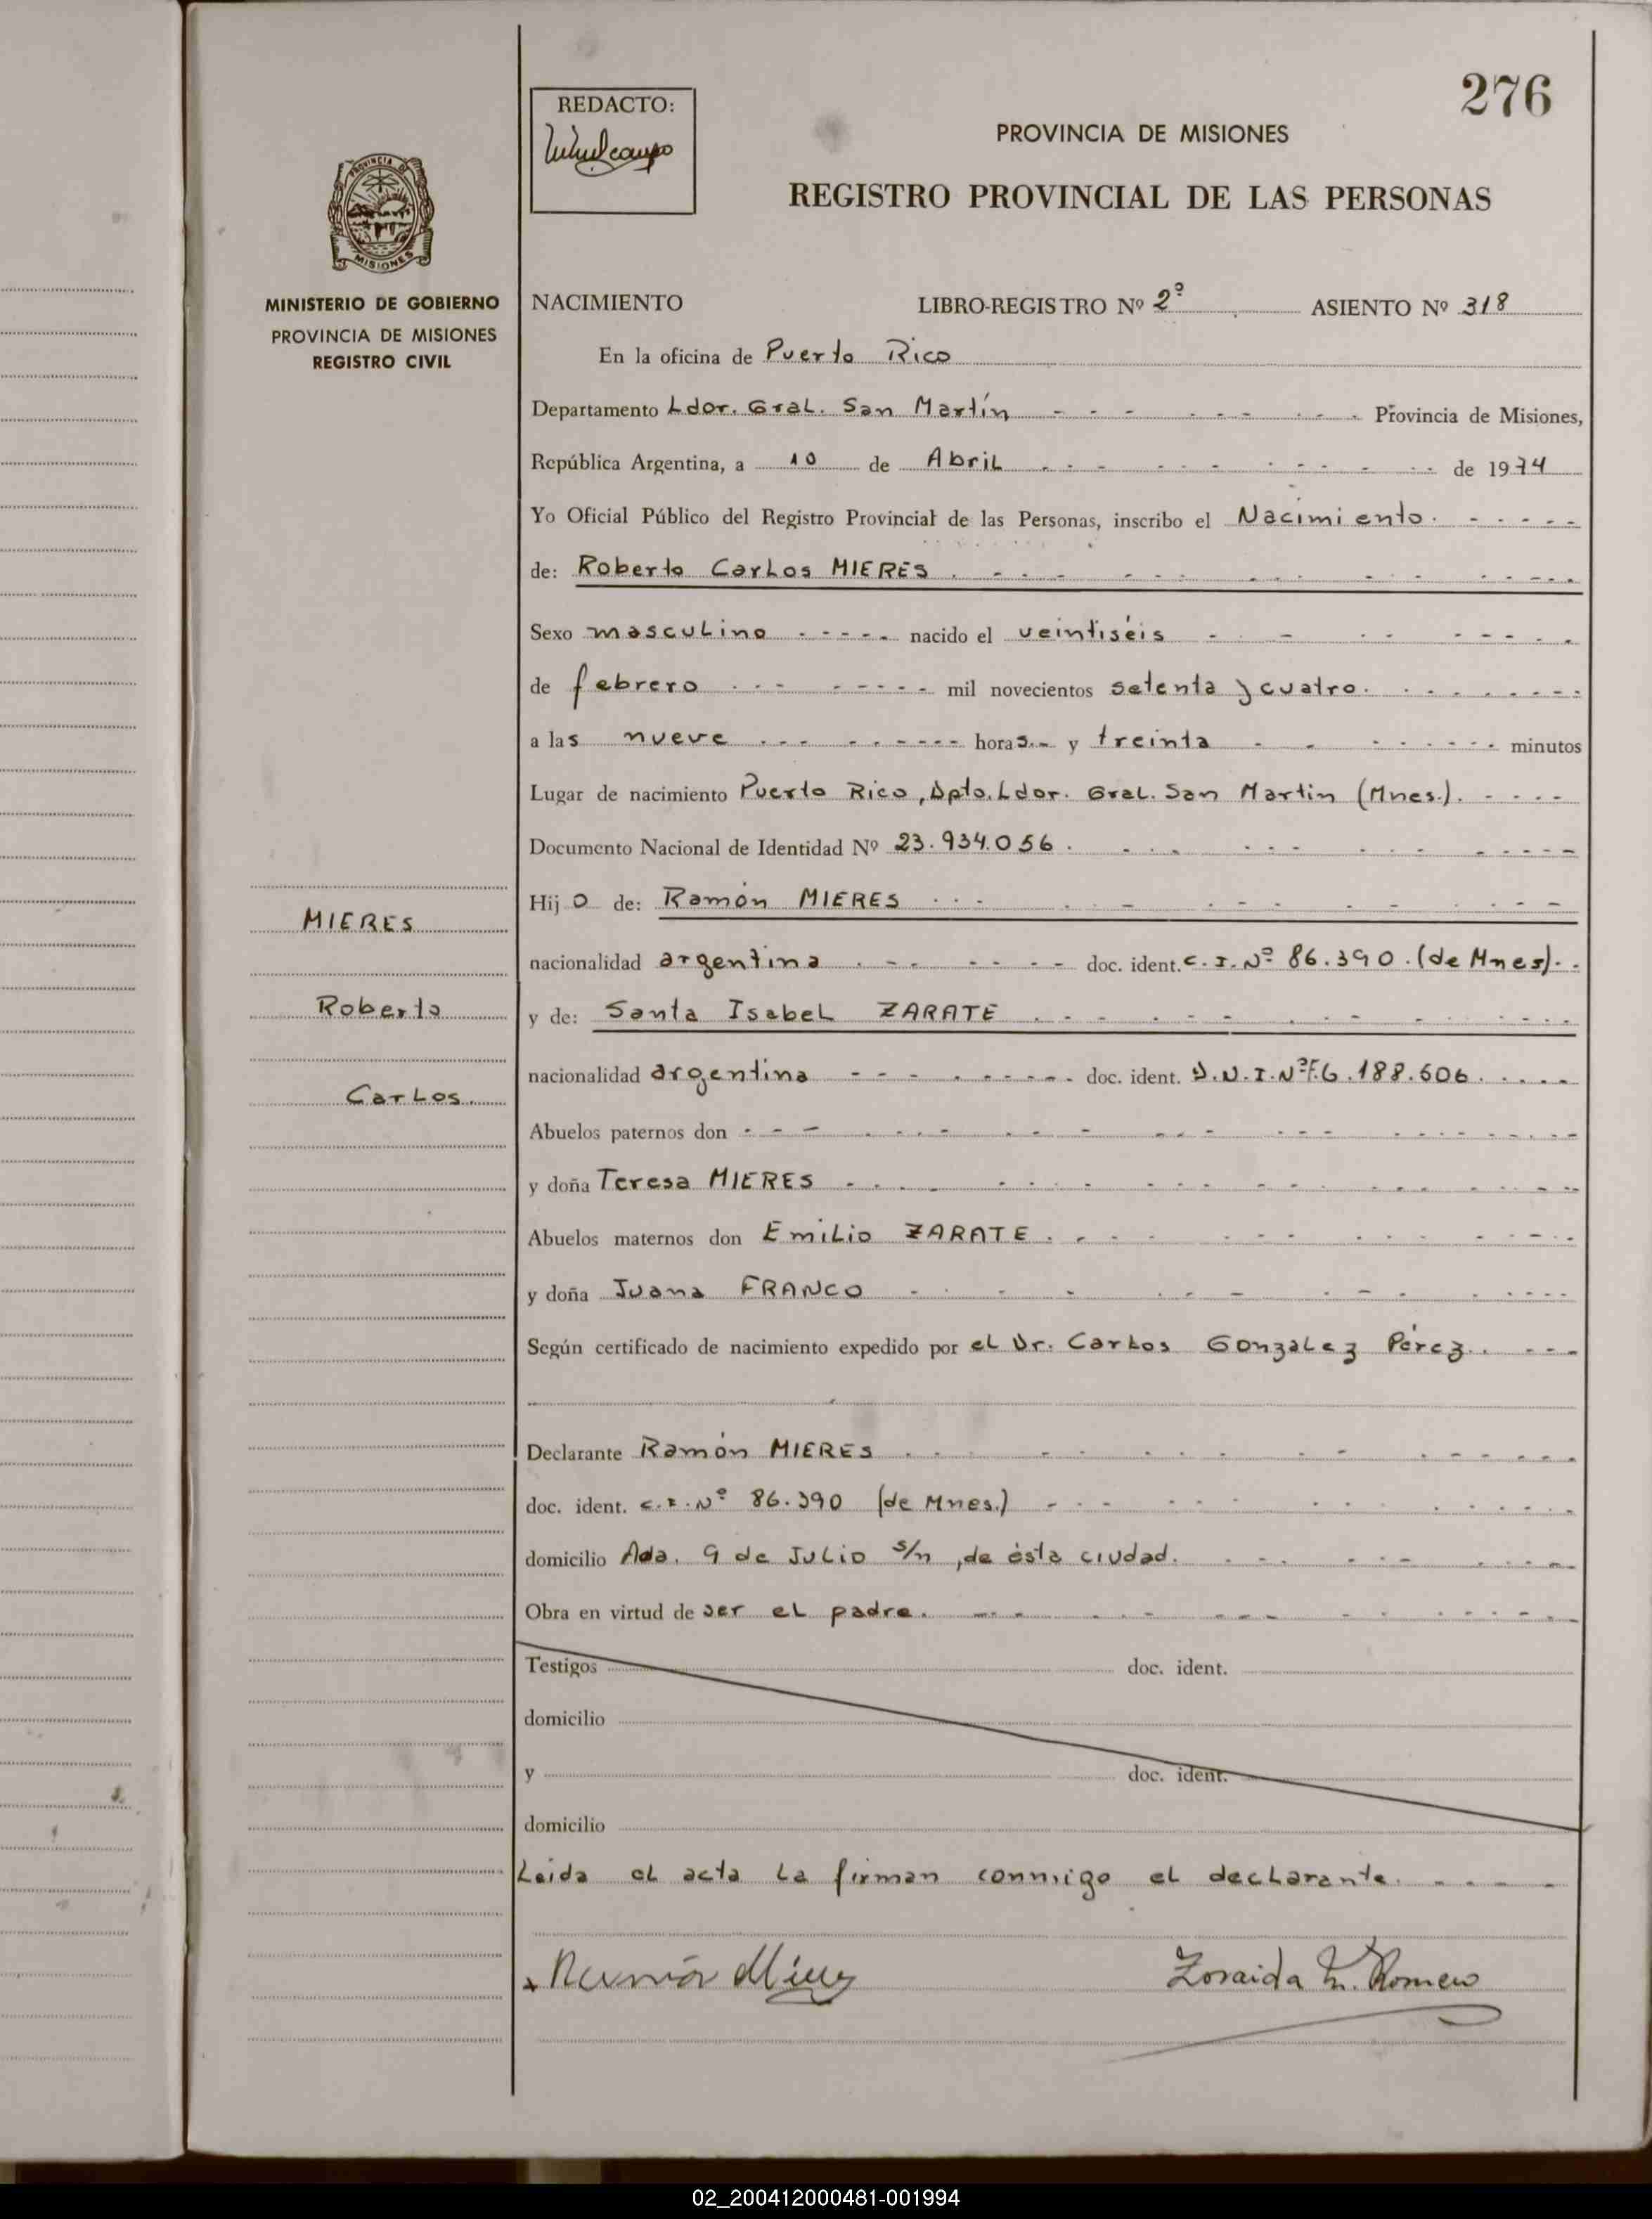 276
REDACTO:
PROVINCIA DE MISIONES
REGISTRO PROVINCIAL DE LAS PERSONAS
PROVINCIA DE
MISIONES
MINISTERIO DE GOBIERNO
PROVINCIA DE MISIONES
REGISTRO CIVIL
NACIMIENTO LIBRO-REGISTRO Nº 2º ASIENTO Nº 318
En la oficina de Puerto Rico
Departamento Ldor. Gral. San Martín Provincia de Misiones,
República Argentina, a 10 de Abril de 1974
Yo Oficial Público del Registro Provincial de las Personas, inscribo el Nacimiento.
de: Roberto Carlos MIERES
Sexo masculino nacido el veintiséis
de febrero mil novecientos setenta y cuatro.
a las nueve horas.- y treinta minutos
Lugar de nacimiento Puerto Rico, Dpto. Ldor. Gral. San Martín (Mnes.).
Documento Nacional de Identidad Nº 23.934.056.
Hij o de: Ramón MIERES
nacionalidad argentina doc. ident. C.I. Nº 86.390. (de Mnes).
y de: Santa Isabel ZARATE
nacionalidad argentina doc. ident. D.N.I. Nº F.6.188.606.
Abuelos paternos don
y doña Teresa MIERES
Abuelos maternos don Emilio ZARATE.
y doña Juana FRANCO
Según certificado de nacimiento expedido por el Dr. Carlos Gonzalez Pérez.
Declarante Ramón MIERES
doc. ident. C.I. Nº 86.390 (de Mnes.)
domicilio Ada. 9 de Julio s/n, de ésta ciudad.
Obra en virtud de ser el padre.
Testigos doc. ident.
domicilio
y doc. ident.
domicilio
Leida el acta la firman conmigo el declarante.
Ramón Mieres Zoraida M. Romero
MIERES
Roberto
Carlos
02_200412000481-001994